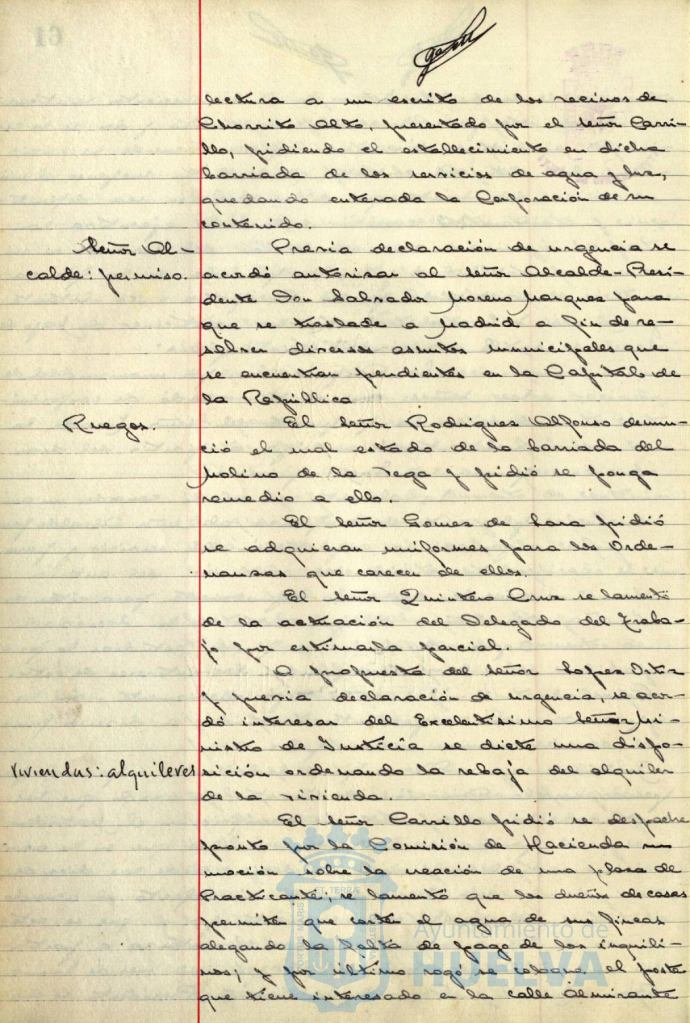 lectura a un escrito de los vecinos de
Chorrito Alto, presentado por el señor Carri-
llo, pidiendo el establecimiento en dicha
barriada de los servicios de agua y luz,
quedando enterada la Corporación de su
contenido.
Señor Al-
calde: permiso.
Previa declaración de urgencia se
acordó autorizar al señor Alcalde-Presi-
dente Don Salvador Moreno Marquez para
que se traslade a Madrid a fin de re-
solver diversos asuntos municipales que
se encuentran pendientes en la Capital de
la República
Ruegos.
El señor Rodriguez Alfonso denun-
ció el mal estado de la barriada del
Molino de la Vega y pidió se ponga
remedio a ello.
El señor Gomez de Lara pidió
se adquieran uniformes para los Orde-
nanzas que carecen de ellos.
El señor Quintero Cruz se lamentó
de la actuación del Delegado del Traba-
jo por estimarla parcial.
A propuesta del señor Lopez Ortiz
y previa declaración de urgencia, se acor-
dó interesar del Excelentisimo Señor Mi-
nistro de Justicia se dicte una dispo-
Viviendas: alquileres
sición ordenando la rebaja del alquiler
de la vivienda.
El señor Carrillo pidió se despache
pronto por la Comisión de Hacienda su
moción sobre la creación de una plaza de
Practicante; se lamentó que los dueños de casas
permiten que corte el agua de sus fincas
alegando la falta de pago de los inquili-
nos; y por último rogó se coloque el poste
que tiene interesado en la calle Almirante
Ayuntamiento de
HUELVA